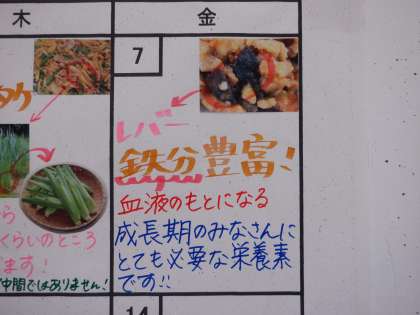 木
金
7
レバー
鉄分豊富!
血液のもとになる
成長期のみなさんに
とても必要な栄養素
です!!
くらいのところ
ます!
中間ではありません!
14